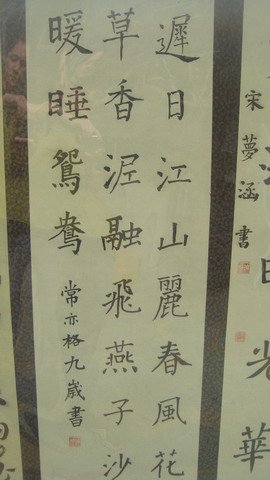 宋夢涵書
遲日江山麗春風花
草香泥融飛燕子沙
暖睡鴛鴦
常亦格九歲書
光華